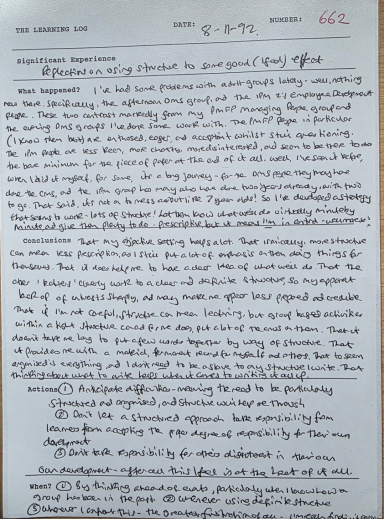 THE LEARNING LOG
DATE: 8-11-92. NUMBER: 662
Significant Experience
Reflection on using structure to some good (I feel) effect
What happened? I've had some problems with adult groups lately - well, nothing
new there. Specifically, the afternoon DMS group, and the IPM 2's Employee Development
people. These two contrast markedly from my PMFP managing people group and
the evening DMS groups I've done some work with. The PMFP people in particular
(I know them best) are enthused, eager, and accepting whilst still questioning.
The IPM people are less keen, more cheating, more disinterested, and seem to be there to do
the bare minimum for the piece of paper at the end of it all. Well, I've seen it before,
when I did it myself, for some, it's a long journey - for the DMS people they may have
done the CMS, and the IPM group has many who have done two years already, with two
to go. That said, it's not a mess about like 7 year olds! So I've developed a strategy
that seems to work - lots of structure! Let them know what we'll do virtually minute by
minute, and give them plenty to do - prescriptive, but it means I'm in control
Conclusions That my objective setting helps a lot. That ironically, more structure
can mean less prescription, as I still put a lot of emphasis on them doing things for
themselves. That it does help me to have a clear idea of what we'll do. That the
other 'tutors' clearly work to a clear and definite structure, so my apparent
lack of of interests sharply, and may make me appear less prepared and credible.
That if I'm not careful, structure can mean lecturing, but group based activities
within a tight structure could for me does, put a lot of the onus on them. That it
doesn't take me long to put a few words together by way of structure. That
it provides me with a material, permanent record for myself and others. That to seem
organised is everything and I don't need to be a slave to my structure I write. That
thinking about what to write helps when it comes to writing it all up.
Actions ① Anticipate difficulties - meaning the need to be particularly
structured and organised, and structure will help me through
② Don't let a structured approach take responsibility from
learners from accepting the proper degree of responsibility for their own
development
③ Don't take responsibility for others disinterest in their own
own development - after all this I feel is at the heart of it all
When? ① By thinking ahead of events, particularly when I know how a
group has been in the past ② Whenever using definite structure
③ Whenever I